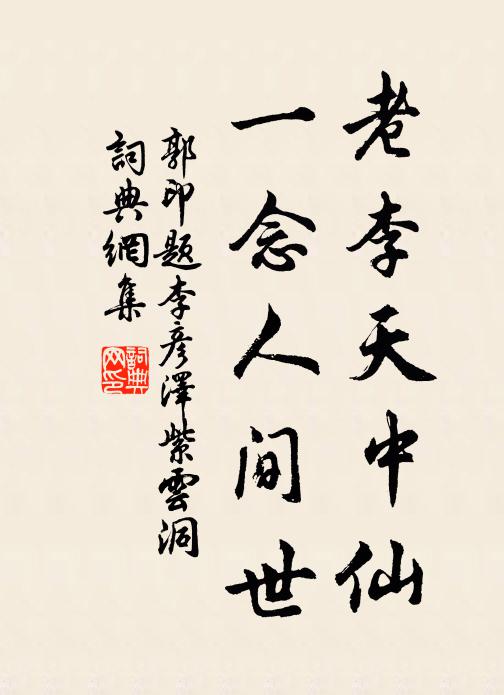 老李天中仙
一念人間世
郭印題李彥澤紫雲洞
詞典網集
詞典网印